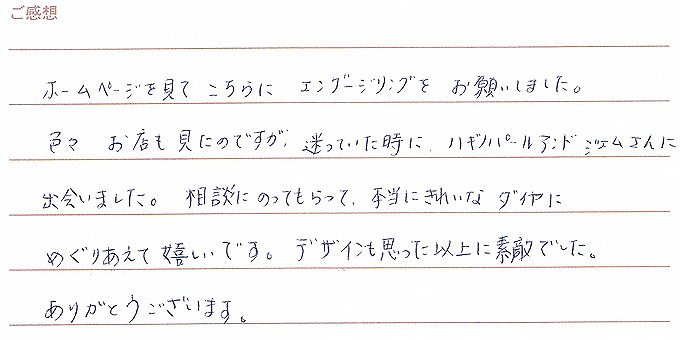 ご感想
ホームページを見て こちらに エンゲージリングを お願いしました。
色々 お店も見たのですが、迷っていた時に、ハギノパールアンドジェムさんに
出会いました。相談にのってもらって、本当にきれいな ダイヤに
めぐりあえて嬉しいです。デザインも思った以上に素敵でした。
ありがとうございます。